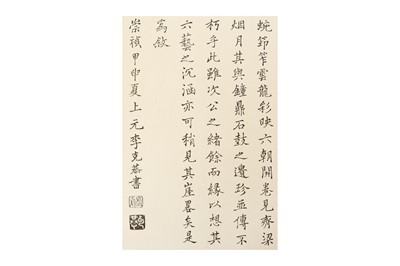 蜿節笮雲龍彩映六朝開卷見齊梁
烟月其與鐘鼎石鼓之邊珍並傳不
朽乎此雖次公之緒餘而緣以想其
六藝之沉涵亦可稍見其崖畧矣是
為敘
崇禎甲申夏上元李克恭書